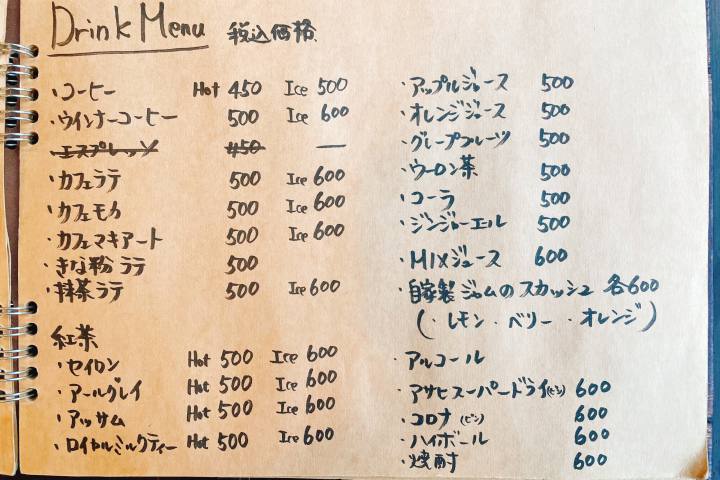 Drink Menu 税込価格
・コーヒー Hot 450 Ice 500
・ウインナーコーヒー 500 Ice 600
・エスプレッソ 450 —
・カフェラテ 500 Ice 600
・カフェモカ 500 Ice 600
・カフェマキアート 500 Ice 600
・きな粉ラテ 500
・抹茶ラテ 500 Ice 600
紅茶
・セイロン Hot 500 Ice 600
・アールグレイ Hot 500 Ice 600
・アッサム Hot 500 Ice 600
・ロイヤルミルクティー Hot 500 Ice 600
・アップルジュース 500
・オレンジジュース 500
・グレープフルーツ 500
・ウーロン茶 500
・コーラ 500
・ジンジャーエル 500
・MIXジュース 600
・自家製ジャムのスカッシュ 各600
(・レモン・ベリー・オレンジ)
・アルコール
・アサヒスーパードライ(ビン) 600
・コロナ(ビン) 600
・ハイボール 600
・焼酎 600